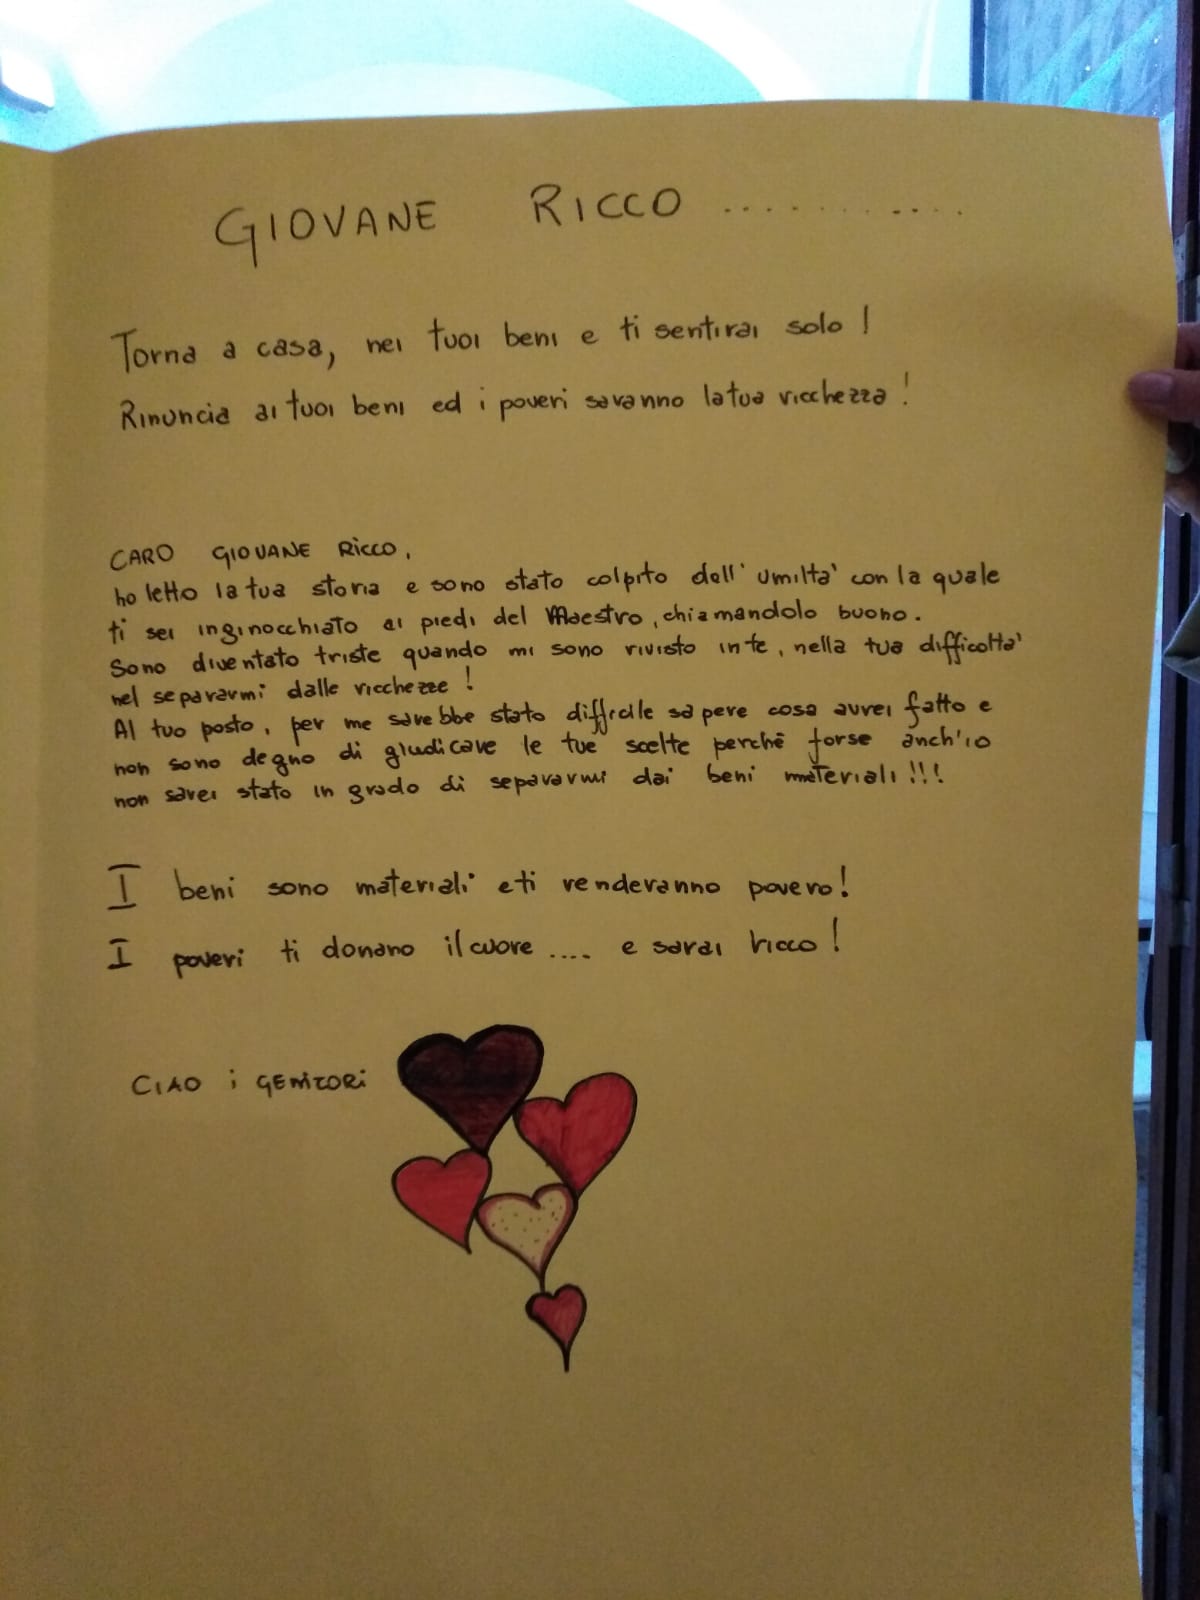 GIOVANE RICCO ............
Torna a casa, nei tuoi beni e ti sentirai solo!
Rinuncia ai tuoi beni ed i poveri saranno la tua ricchezza!
CARO GIOVANE RICCO,
ho letto la tua storia e sono stato colpito dell'umiltà con la quale
ti sei inginocchiato ai piedi del Maestro, chiamandolo buono.
Sono diventato triste quando mi sono rivisto in te, nella tua difficoltà
nel separarmi dalle ricchezze!
Al tuo posto, per me sarebbe stato difficile sapere cosa avrei fatto e
non sono degno di giudicare le tue scelte perchè forse anch'io
non sarei stato in grado di separarmi dai beni materiali!!!
I beni sono materiali e ti renderanno povero!
I poveri ti donano il cuore .... e sarai ricco!
CIAO i GENITORI